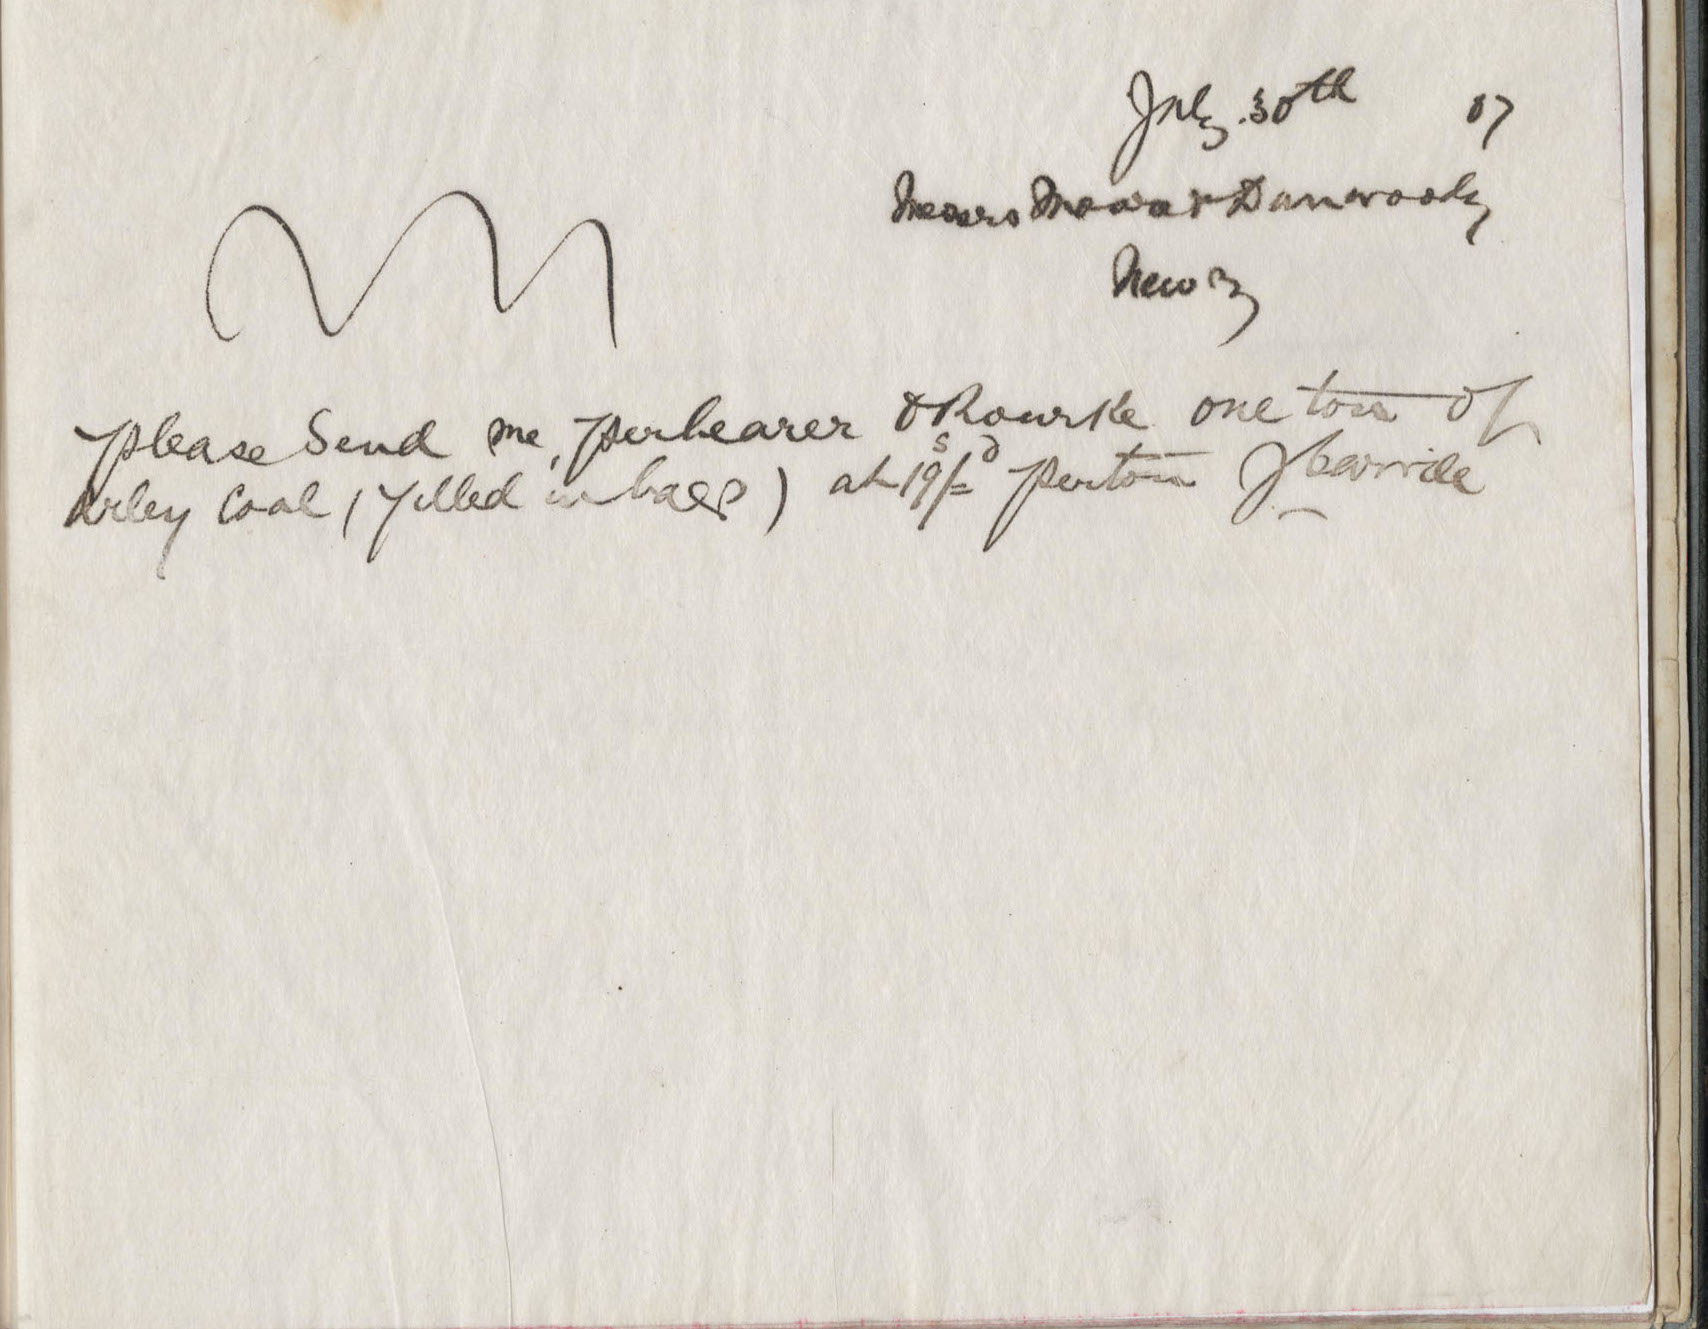 July 30th 07
Messrs & Dunwoody
Newry
please send me, per bearer O Rourke one ton of
Arley Coal, (filled in bags) at 19/=  s d per ton J Carville